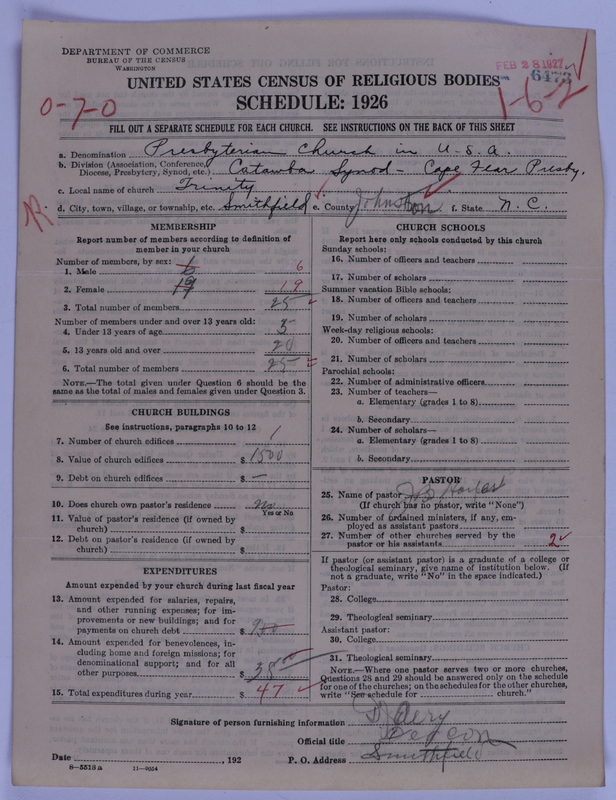 DEPARTMENT OF COMMERCE
BUREAU OF THE CENSUS
WASHINGTON
FEB 28 1927
6473
UNITED STATES CENSUS OF RELIGIOUS BODIES
SCHEDULE: 1926
0-7-0
1-6-2
FILL OUT A SEPARATE SCHEDULE FOR EACH CHURCH. SEE INSTRUCTIONS ON THE BACK OF THIS SHEET
a. Denomination Presbyterian Church in U.S.A.
b. Division (Association, Conference, Diocese, Presbytery, Synod, etc.) Catawba Synod - Cape Fear Presby.
c. Local name of church Trinity
d. City, town, village, or township, etc. Smithfield e. County Johnston f. State N.C.
MEMBERSHIP
Report number of members according to definition of
member in your church
Number of members, by sex:
1. Male 6 6
2. Female 19 19
3. Total number of members 25
Number of members under and over 13 years old:
4. Under 13 years of age 5
5. 13 years old and over 20
6. Total number of members 25
NOTE.—The total given under Question 6 should be the
same as the total of males and females given under Question 3.
CHURCH BUILDINGS
See instructions, paragraphs 10 to 12
7. Number of church edifices 1
8. Value of church edifices $ 1500
9. Debt on church edifices $ —
10. Does church own pastor's residence no
Yes or No
11. Value of pastor's residence (if owned by
church) $
12. Debt on pastor's residence (if owned by
church) $
EXPENDITURES
Amount expended by your church during last fiscal year
13. Amount expended for salaries, repairs,
and other running expenses; for im-
provements or new buildings; and for
payments on church debt $
14. Amount expended for benevolences, in-
cluding home and foreign missions; for
denominational support; and for all
other purposes $ 38
15. Total expenditures during year $ 47
CHURCH SCHOOLS
Report here only schools conducted by this church
Sunday schools:
16. Number of officers and teachers
17. Number of scholars
Summer vacation Bible schools:
18. Number of officers and teachers
19. Number of scholars
Week-day religious schools:
20. Number of officers and teachers
21. Number of scholars
Parochial schools:
22. Number of administrative officers
23. Number of teachers—
a. Elementary (grades 1 to 8)
b. Secondary
24. Number of scholars—
a. Elementary (grades 1 to 8)
b. Secondary
PASTOR
25. Name of pastor
(If church has no pastor, write "None")
26. Number of ordained ministers, if any, em-
ployed as assistant pastors
27. Number of other churches served by the
pastor or his assistants 2
If pastor (or assistant pastor) is a graduate of a college or
theological seminary, give name of institution below. (If
not a graduate, write "No" in the space indicated.)
Pastor:
28. College
29. Theological seminary
Assistant pastor:
30. College
31. Theological seminary
NOTE.—Where one pastor serves two or more churches,
Questions 28 and 29 should be answered only on the schedule
for one of the churches; on the schedules for the other churches,
write "See schedule for church."
Signature of person furnishing information
Official title Deacon
Date , 192 P. O. Address Smithfield
8—5513 a 11—9054